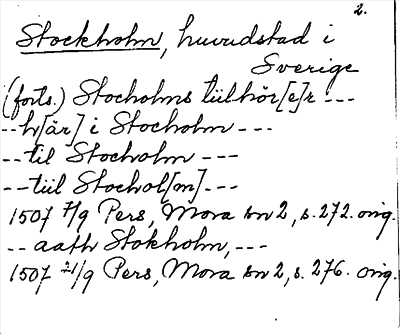 2.
Stockholm, huvudstad i
Sverige
(forts.) Stocholms tiilhör[e]r ---
--h[är] i Stocholm ---
--til Stocholm ---
--tiil Stochol[m]---
1507 7/9 Pers, Mora sn 2, s. 272. orig.
-- aath Stokholm, ---
1507 21/9 Pers, Mora sn 2, s. 276. orig.